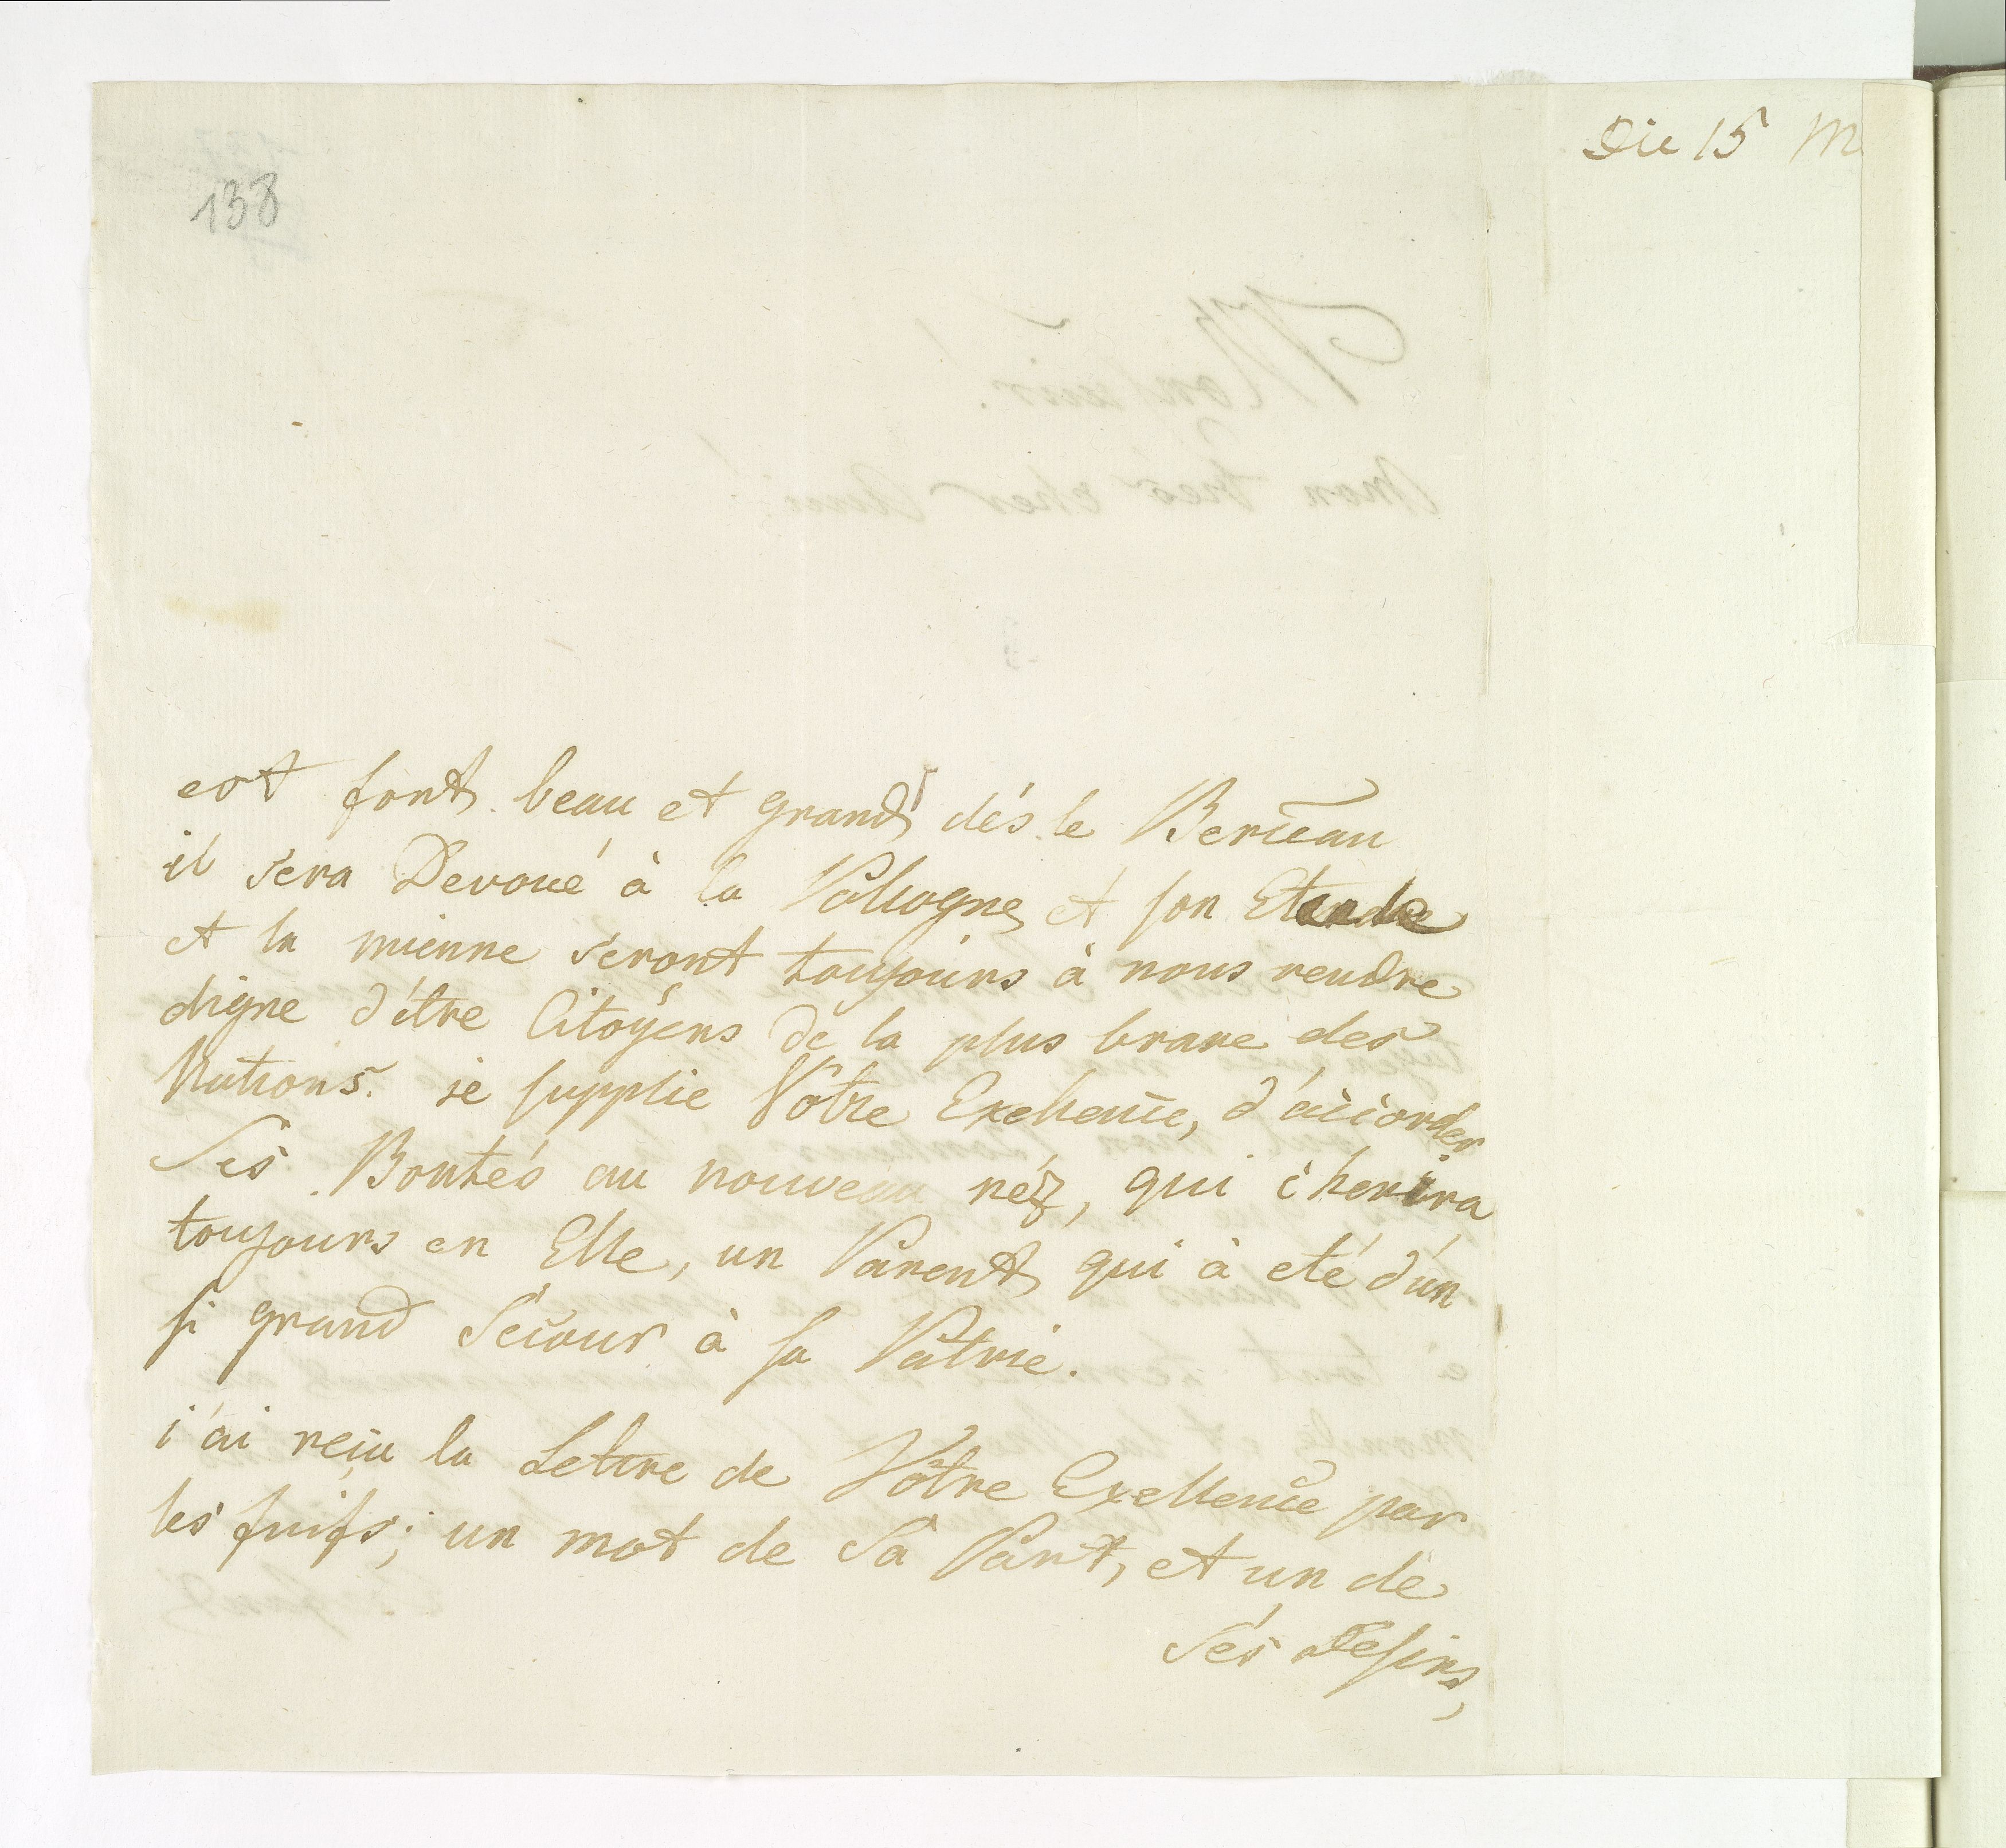 138
Die 15 M
est fort beau et grand dés le Berceau
il sera Devoué à la Pologne et son Etude
et la mienne seront toujours à nous rendre
digne d'être Citoÿens de la plus brave des
Nations. je supplie Vôtre Exellence, d'accorder
Ses Bontés au nouveau néz, qui cherira
toujours en Elle, un Parent qui à eté d'un
si grand Secour à sa Patrie.
j'ai reçu la Lettre de Vôtre Exellence par
les juifs; un mot de Sa Part, et un de
Sés Desirs,